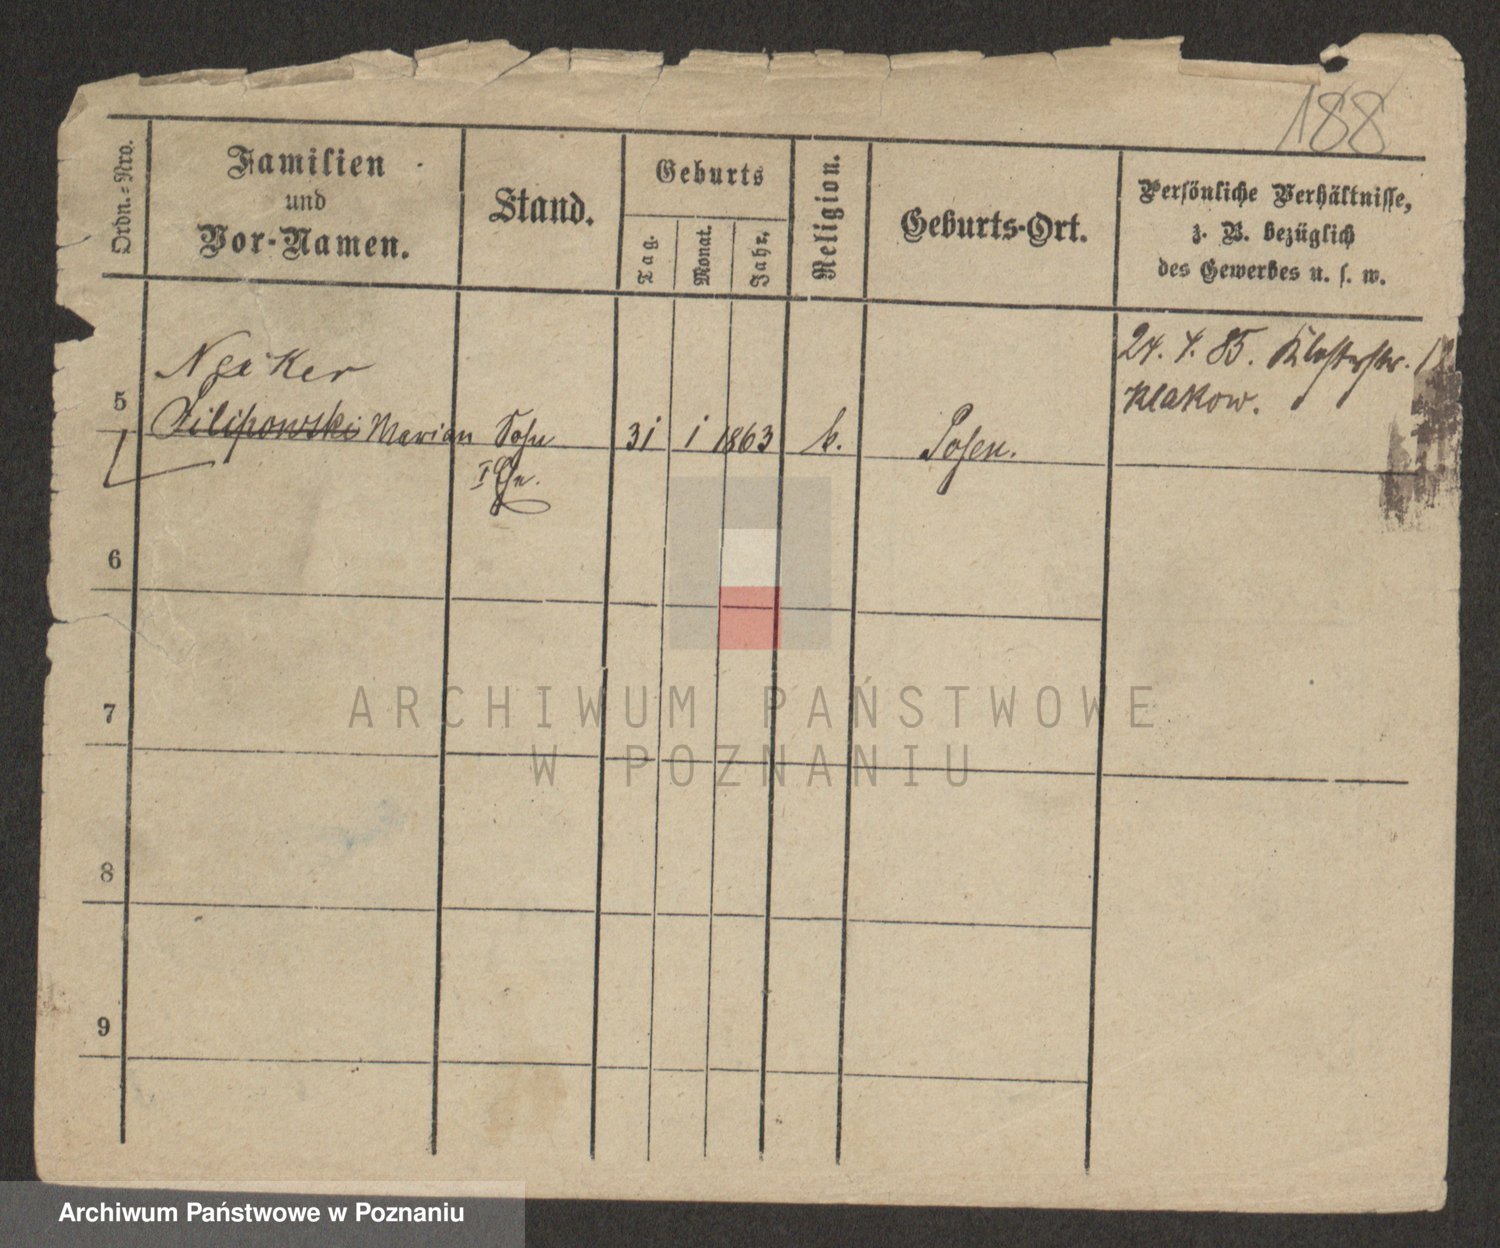 188
Ordn.-Nro.
Familien
und
Vor-Namen.
Stand.
Geburts
Tag.
Monat.
Jahr.
Religion.
Geburts-Ort.
Persönliche Verhältnisse,
z. B. bezüglich
des Gewerbes u. s. w.
24. 4. 85. Klosterstr.
Krakow.
5
Filipowski Marian Sohn 31 1 1863 k. Posen.
I Ehe.
6
7
8
9
ARCHIWUM PAŃSTWOWE
W POZNANIU
Archiwum Państwowe w Poznaniu